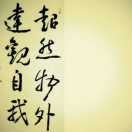 超然物外
達観自我